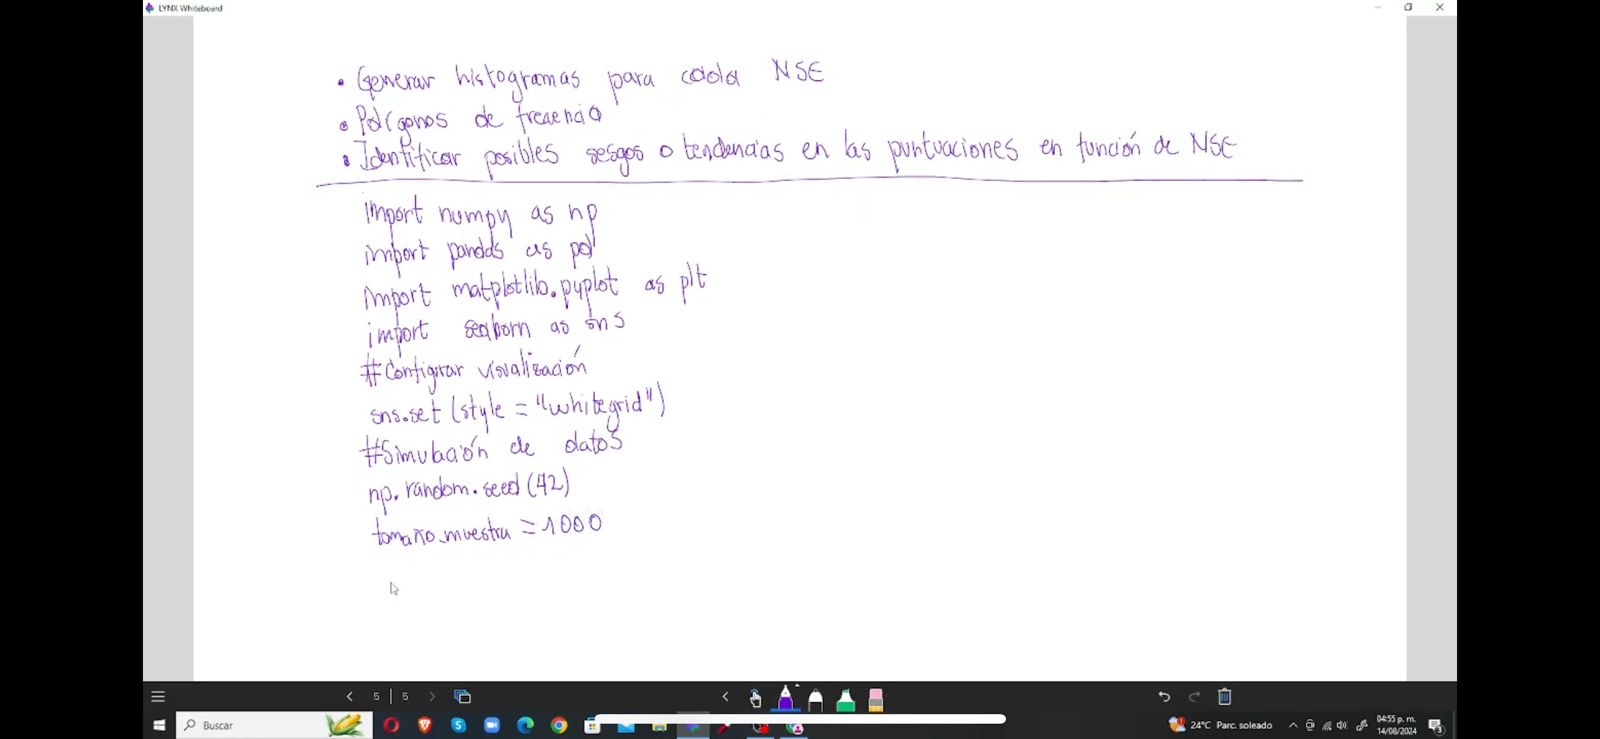 LYNX Whiteboard
• Generar histogramas para cada NSE
• Polígonos de frecuencia
• Identificar posibles sesgos o tendencias en las puntuaciones en función de NSE
import numpy as np
import pandas as pd
import matplotlib.pyplot as plt
import seaborn as sns
#Configurar visualización
sns.set (style = "whitegrid")
#Simulación de datos
np.random.seed(42)
tamaño_muestra = 1000
5 | 5
Buscar
24°C Parc. soleado
04:55 p. m.
14/08/2024
3